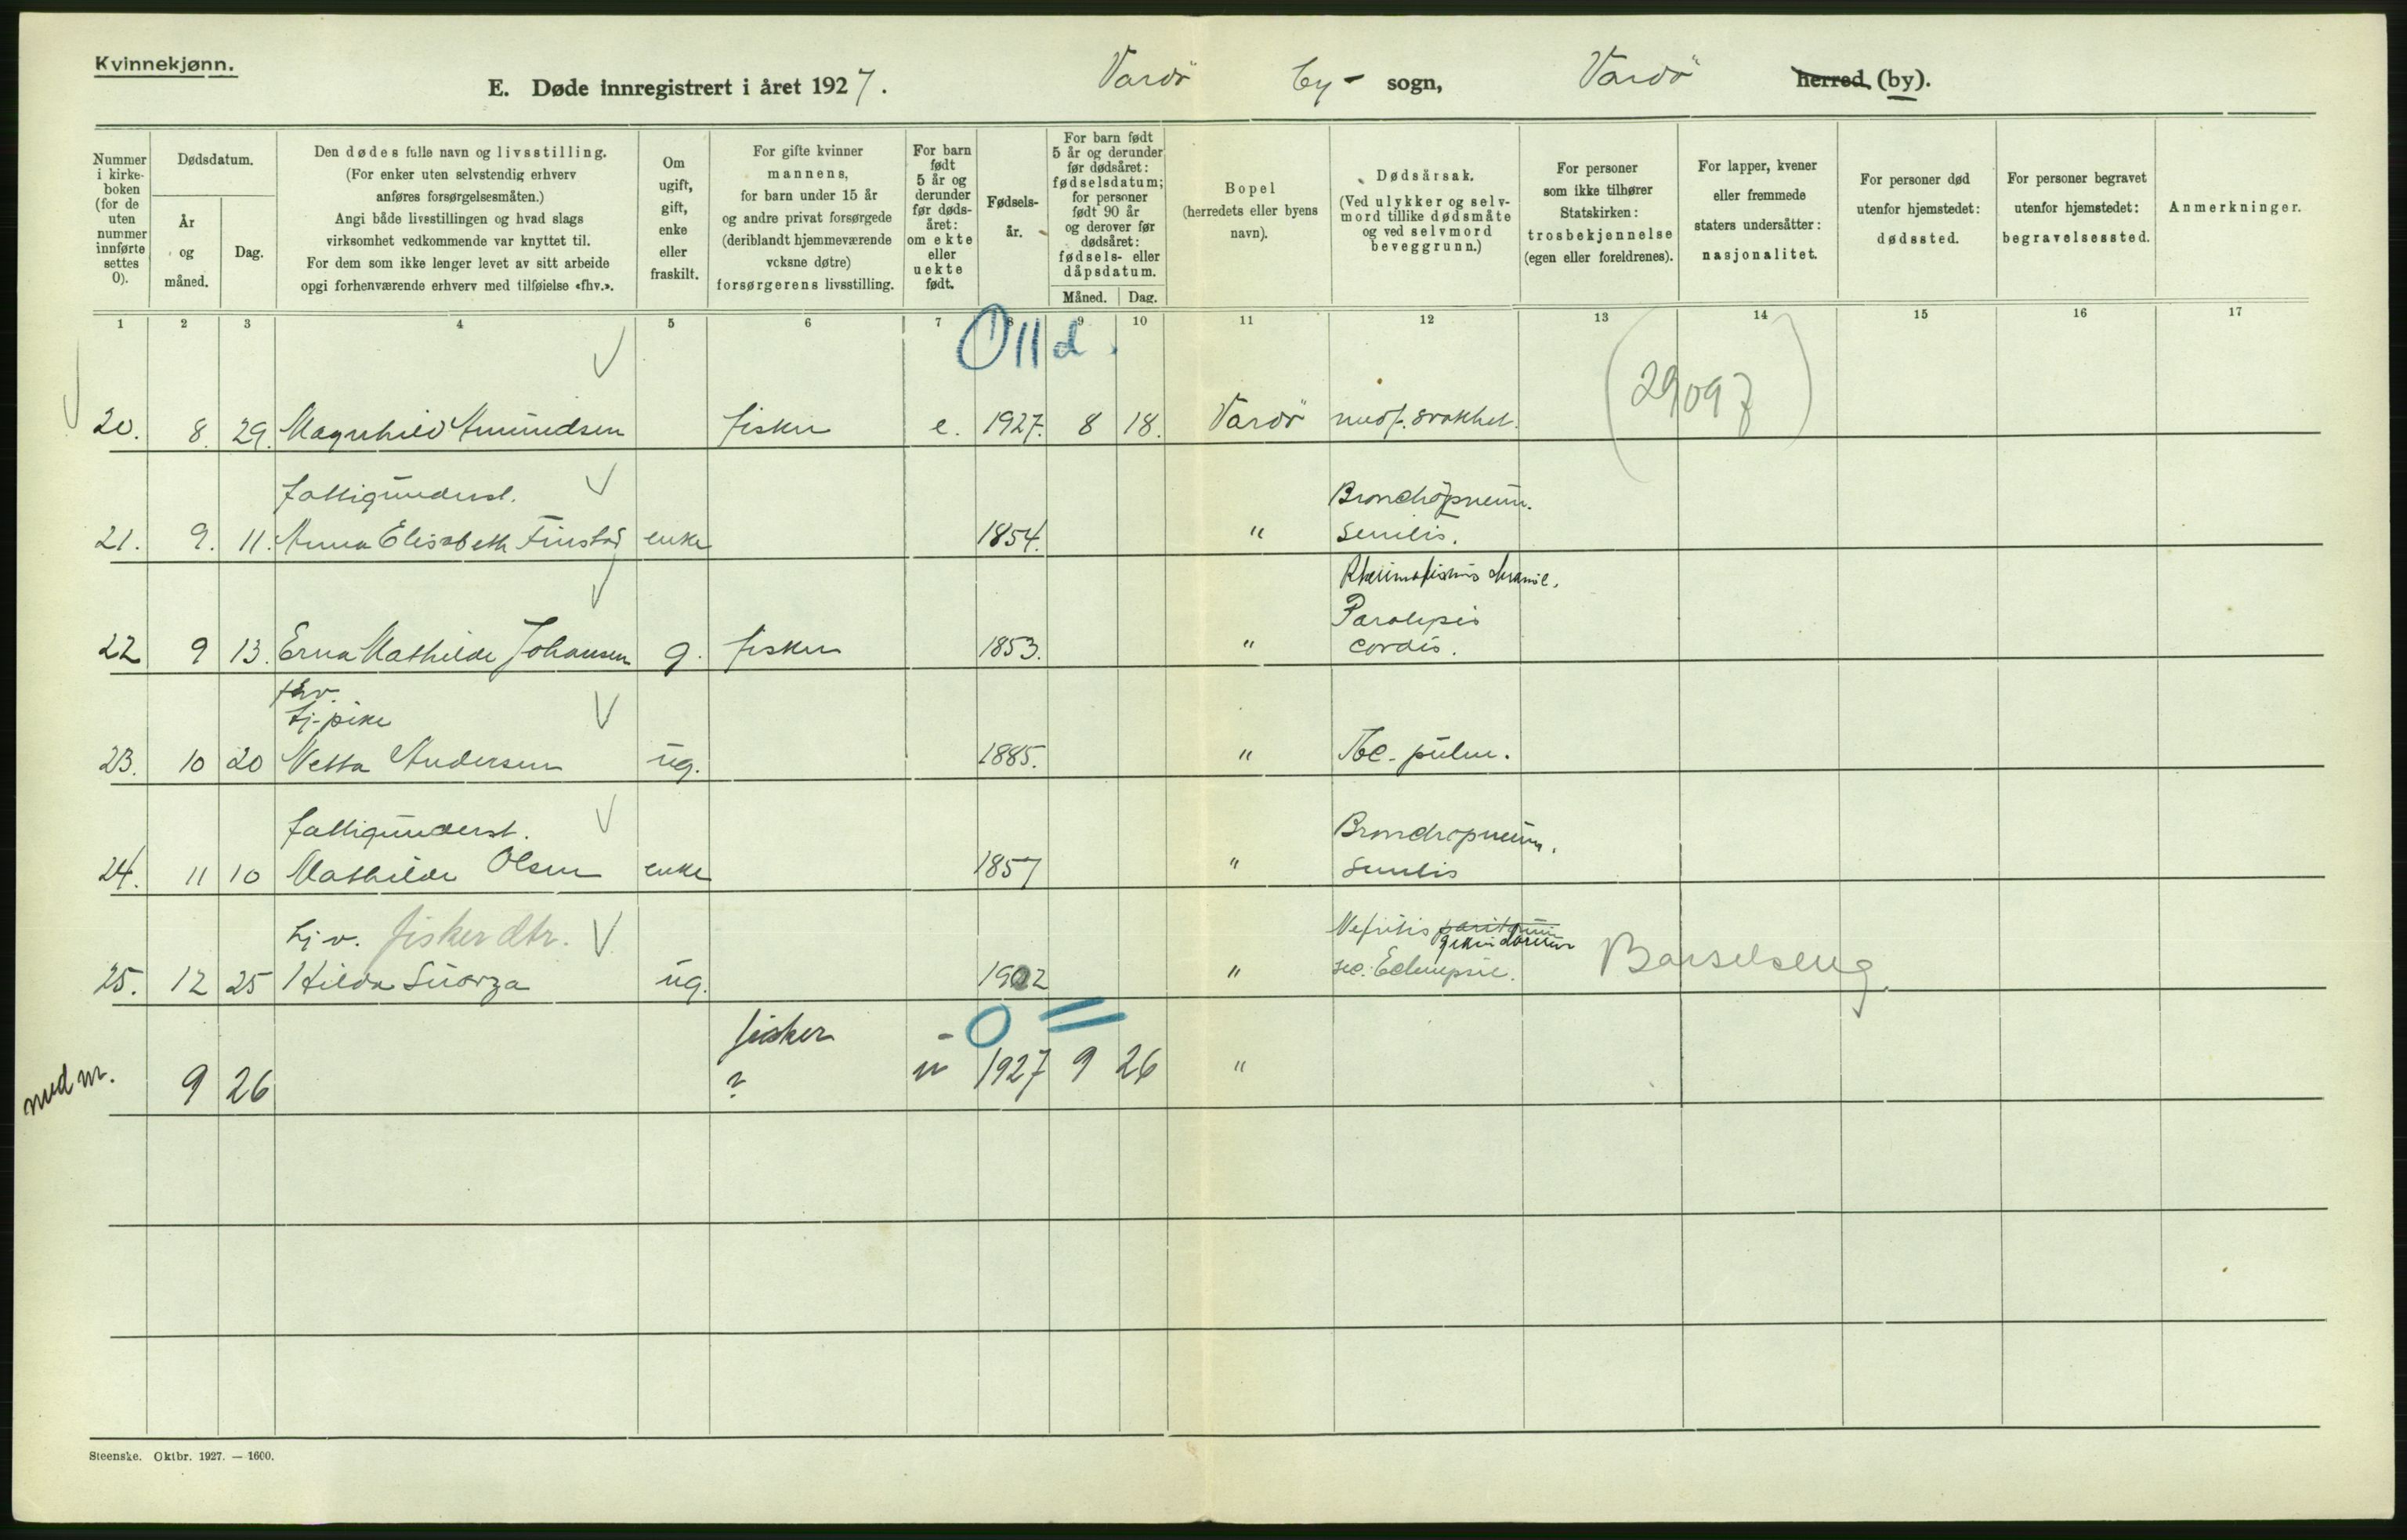 Kvinnekjønn.
E. Døde innregistrert i året 1927. Vardö by- sogn, Vardö herred (by).
Nummer i kirkeboken (for de uten nummer innførte settes 0).
Dødsdatum.
År og måned.
Dag.
Den dødes fulle navn og livsstilling.
(For enker uten selvstendig erhverv
anføres forsørgelsesmåten.)
Angi både livsstillingen og hvad slags
virksomhet vedkommende var knyttet til.
For dem som ikke lenger levet av sitt arbeide
opgi forhenværende erhverv med tilføielse «fhv.».
Om ugift, gift, enke eller fraskilt.
For gifte kvinner
mannens,
for barn under 15 år
og andre privat forsørgede
(deriblandt hjemmeværende
voksne døtre)
forsørgerens livsstilling.
For barn født 5 år og derunder før dødsåret: om ekte eller uekte født.
Fødselsår.
For barn født
5 år og derunder
før dødsåret:
fødselsdatum;
for personer
født 90 år
og derover før
dødsåret:
fødsels- eller
dåpsdatum.
Måned. Dag.
Bopel
(herredets eller byens
navn).
Dødsårsak.
(Ved ulykker og selv-
mord tillike dødsmåte
og ved selvmord
beveggrunn.)
For personer
som ikke tilhører
Statskirken:
trosbekjennelse
(egen eller foreldrenes).
For lapper, kvener
eller fremmede
staters undersåtter:
nasjonalitet.
For personer død
utenfor hjemstedet:
dødssted.
For personer begravet
utenfor hjemstedet:
begravelsessted.
Anmerkninger.
1 2 3 4 5 6 7 8 9 10 11 12 13 14 15 16 17
0 11 d.
20. 8. 29. Magnhild Amundsen fisker e. 1927. 8 18. Vardö medf. svakhet. (29097)
fattigunderst. Bronchopneum.
21. 9. 11. Anna Elisabeth Finstad enke 1854. " senilis.
Rheumatismus chronic.
Paralysis
22 9 13. Erna Mathilde Johansen g. fisker 1853. " cordis.
fhv.
tj.pike
23. 10 20 Netta Andersen ug. 1885. " Tbc. pulm.
fattigunderst. Bronchopneum.
24. 11 10 Mathilde Olsen enke 1857 " senilis
hj v. fisker dtr. Nefritis
25. 12 25 Hilda ug. 1902 " sec. Eclampsie. Barselseng
fisker
9 26 ? u 1927 9 26 "
Steenske. Oktbr. 1927. — 1600.